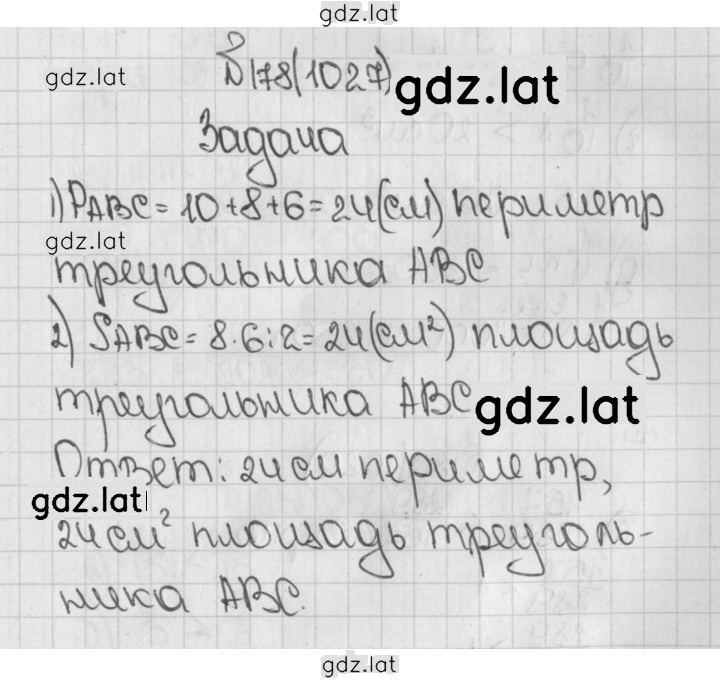 gdz.lat
№178(1027)
gdz.lat
gdz.lat
Задача
1) PABC = 10+8+6=24(см) периметр
gdz.lat
треугольника ABC
2) SABC = 8·6:2=24(см²) площадь
треугольника ABC
gdz.lat
Ответ: 24 см периметр,
gdz.lat
24 см² площадь треуголь-
ника ABC.
gdz.lat